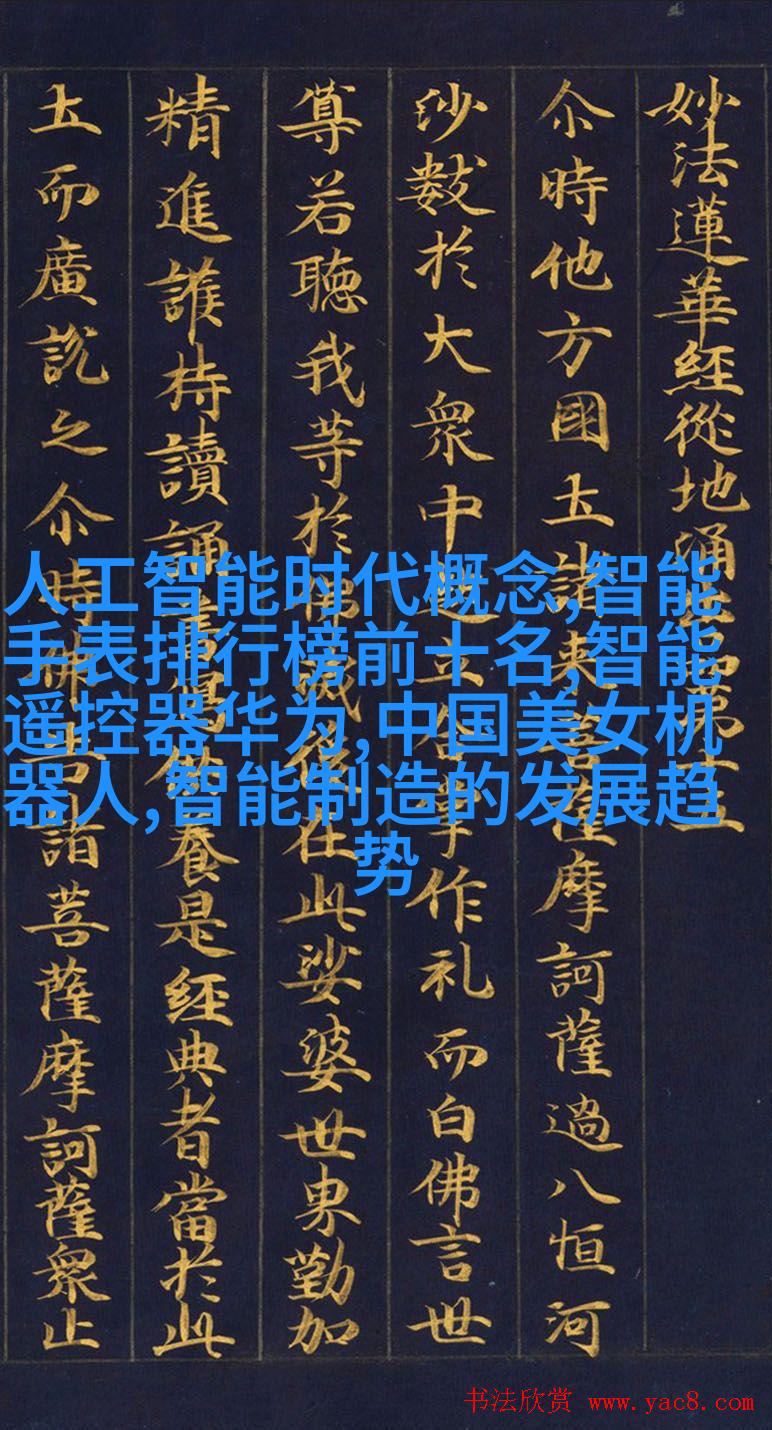 妙法蓮華經從地涌出品第十五
尒時他方國土諸來菩薩摩訶薩過八恒河
沙數於大衆中起立合掌作礼而白佛言世
尊若聽我等於佛滅後在此娑婆世界勤加
精進護持讀誦書寫供養是經典者當於此
土而廣説之尒時佛告諸菩薩摩訶薩衆止
人工智能时代概念,智能
手表排行榜前十名,智能
遥控器华为,中国美女机
器人,智能制造的发展趋
势
书法欣赏 www.yac8.com